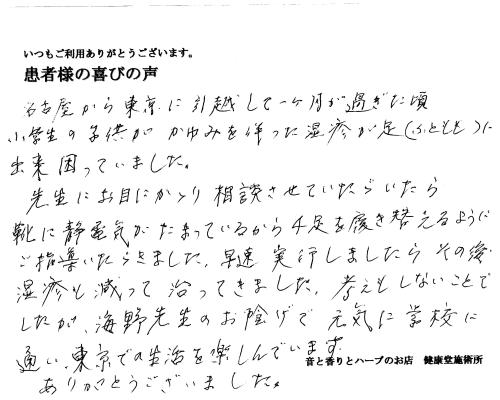 いつもご利用ありがとうございます。
患者様の喜びの声
名古屋から東京に引越して一ヶ月が過ぎた頃
小学生の子供が かゆみを伴った湿疹が足(ふともも)に
出来 困っていました。
先生にお目にかかり 相談させていただいたら
靴に静電気がたまっているから 4足を履き替えるように
ご指導いただきました。早速 実行しましたら その後
湿疹も減って 治ってきました。考えもしないことで
したが、海野先生のお陰げで 元気に学校に
通い、東京での生活を楽しんでいます。
音と香りとハーブのお店 健康堂施術所
ありがとうございました。